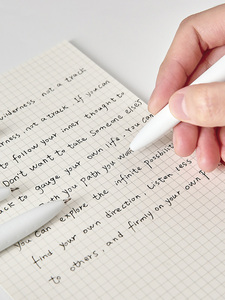 wilderness, not a track
wilderness, not a track. If you can
to follow your inner thought to
Don't want to take someone else's
ack to gauge your own life. You can
path you path you wou
you can explore the infinite possibilit
find your own direction. Listen less
to others, and firmly on your own p